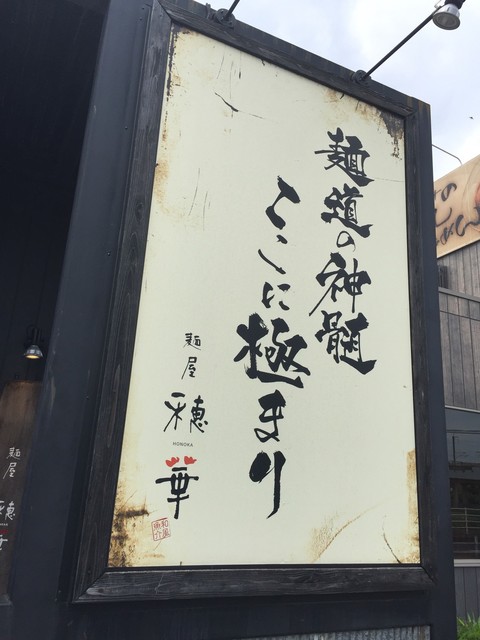 麺道の神髄
ここに極まり
麺屋
穂
HONOKA
華
和風
魚介
麺屋
穂
華